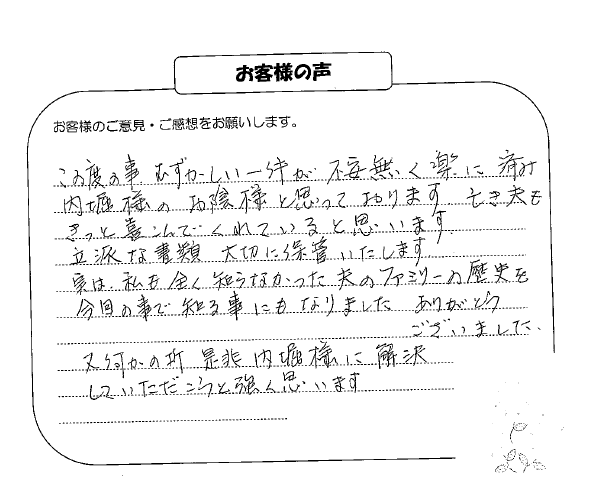 お客様の声
お客様のご意見・ご感想をお願いします。
この度の事 むずかしい一件が 不安無く楽に 済み
内堀様の お陰様と思って おります 亡き夫も
きっと喜こんでくれていると思います
立派な書類 大切に保管いたします
実は 私も全く知らなかった 夫のファミリーの歴史を
今回の事で知る事にもなりました ありがとう
ございました、
又何かの折 是非 内堀様に 解決
していただこうと強く思います